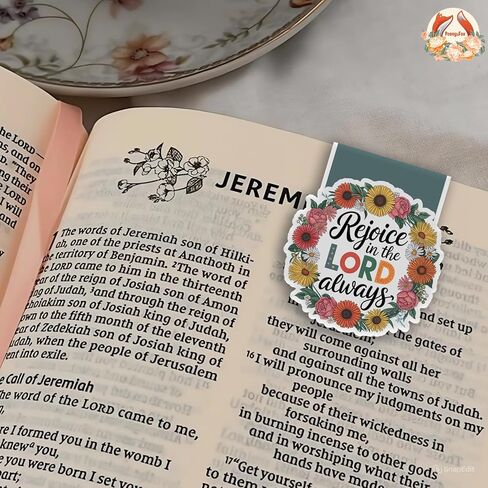 JEREM
The words of Jeremiah son of Hilki-
ah, one of the priests at Anathoth in
the territory of Benjamin. ²The word of
the LORD came to him in the thirteenth
year of the reign of Josiah son of Amon
king of Judah, ³and through the reign of
Jehoiakim son of Josiah king of Judah,
down to the fifth month of the eleventh
year of Zedekiah son of Josiah king of
Judah, when the people of Jerusalem
went into exile.
The Call of Jeremiah
The word of the LORD came to me,
I formed you in the womb I
knew you,
you were born I set you
Rejoice
in the
LORD
always.
and set up
the gates of
they will come against all her
surrounding walls
and against all the towns of Judah.
¹⁶I will pronounce my judgments on my
people
because of their wickedness in
forsaking me,
in burning incense to other gods
and in worshiping what their
hands have made.
¹⁷"Get yourself
SnapEdit